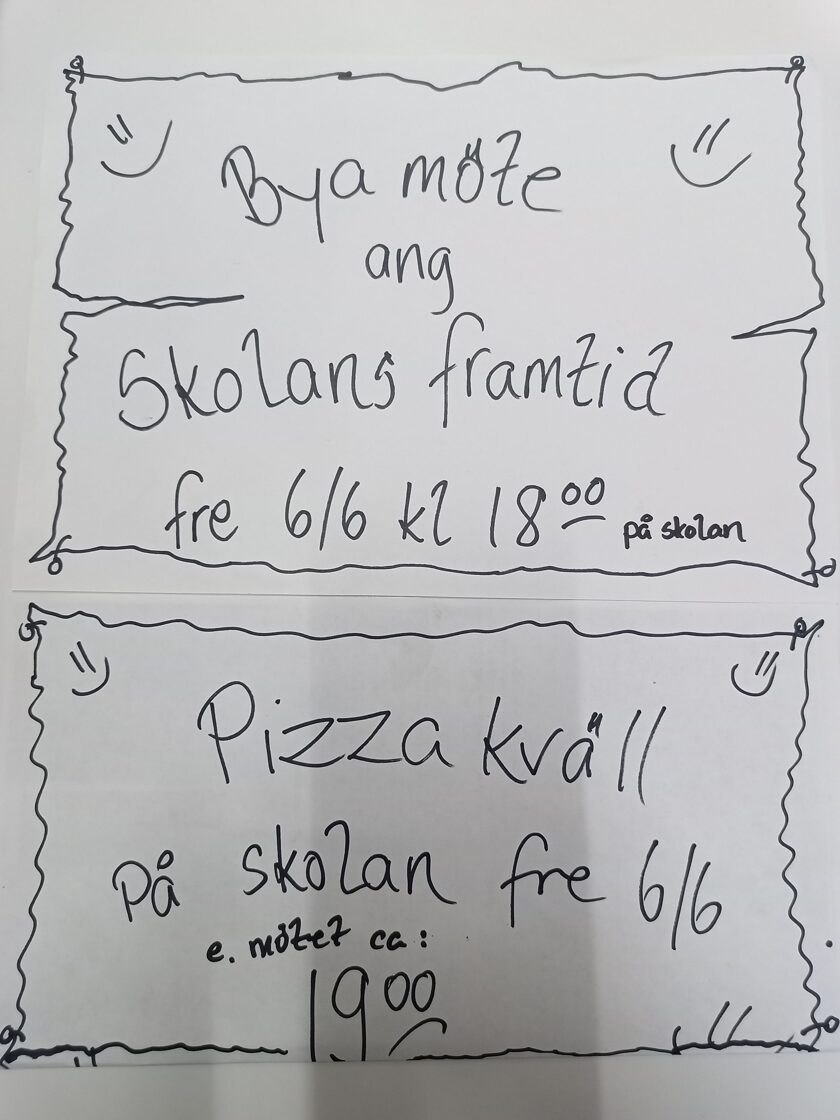 Bya möte
ang
Skolans framtid
fre 6/6 kl 18 00 på skolan
Pizza kväll
På skolan fre 6/6
e. mötet ca:
19 00